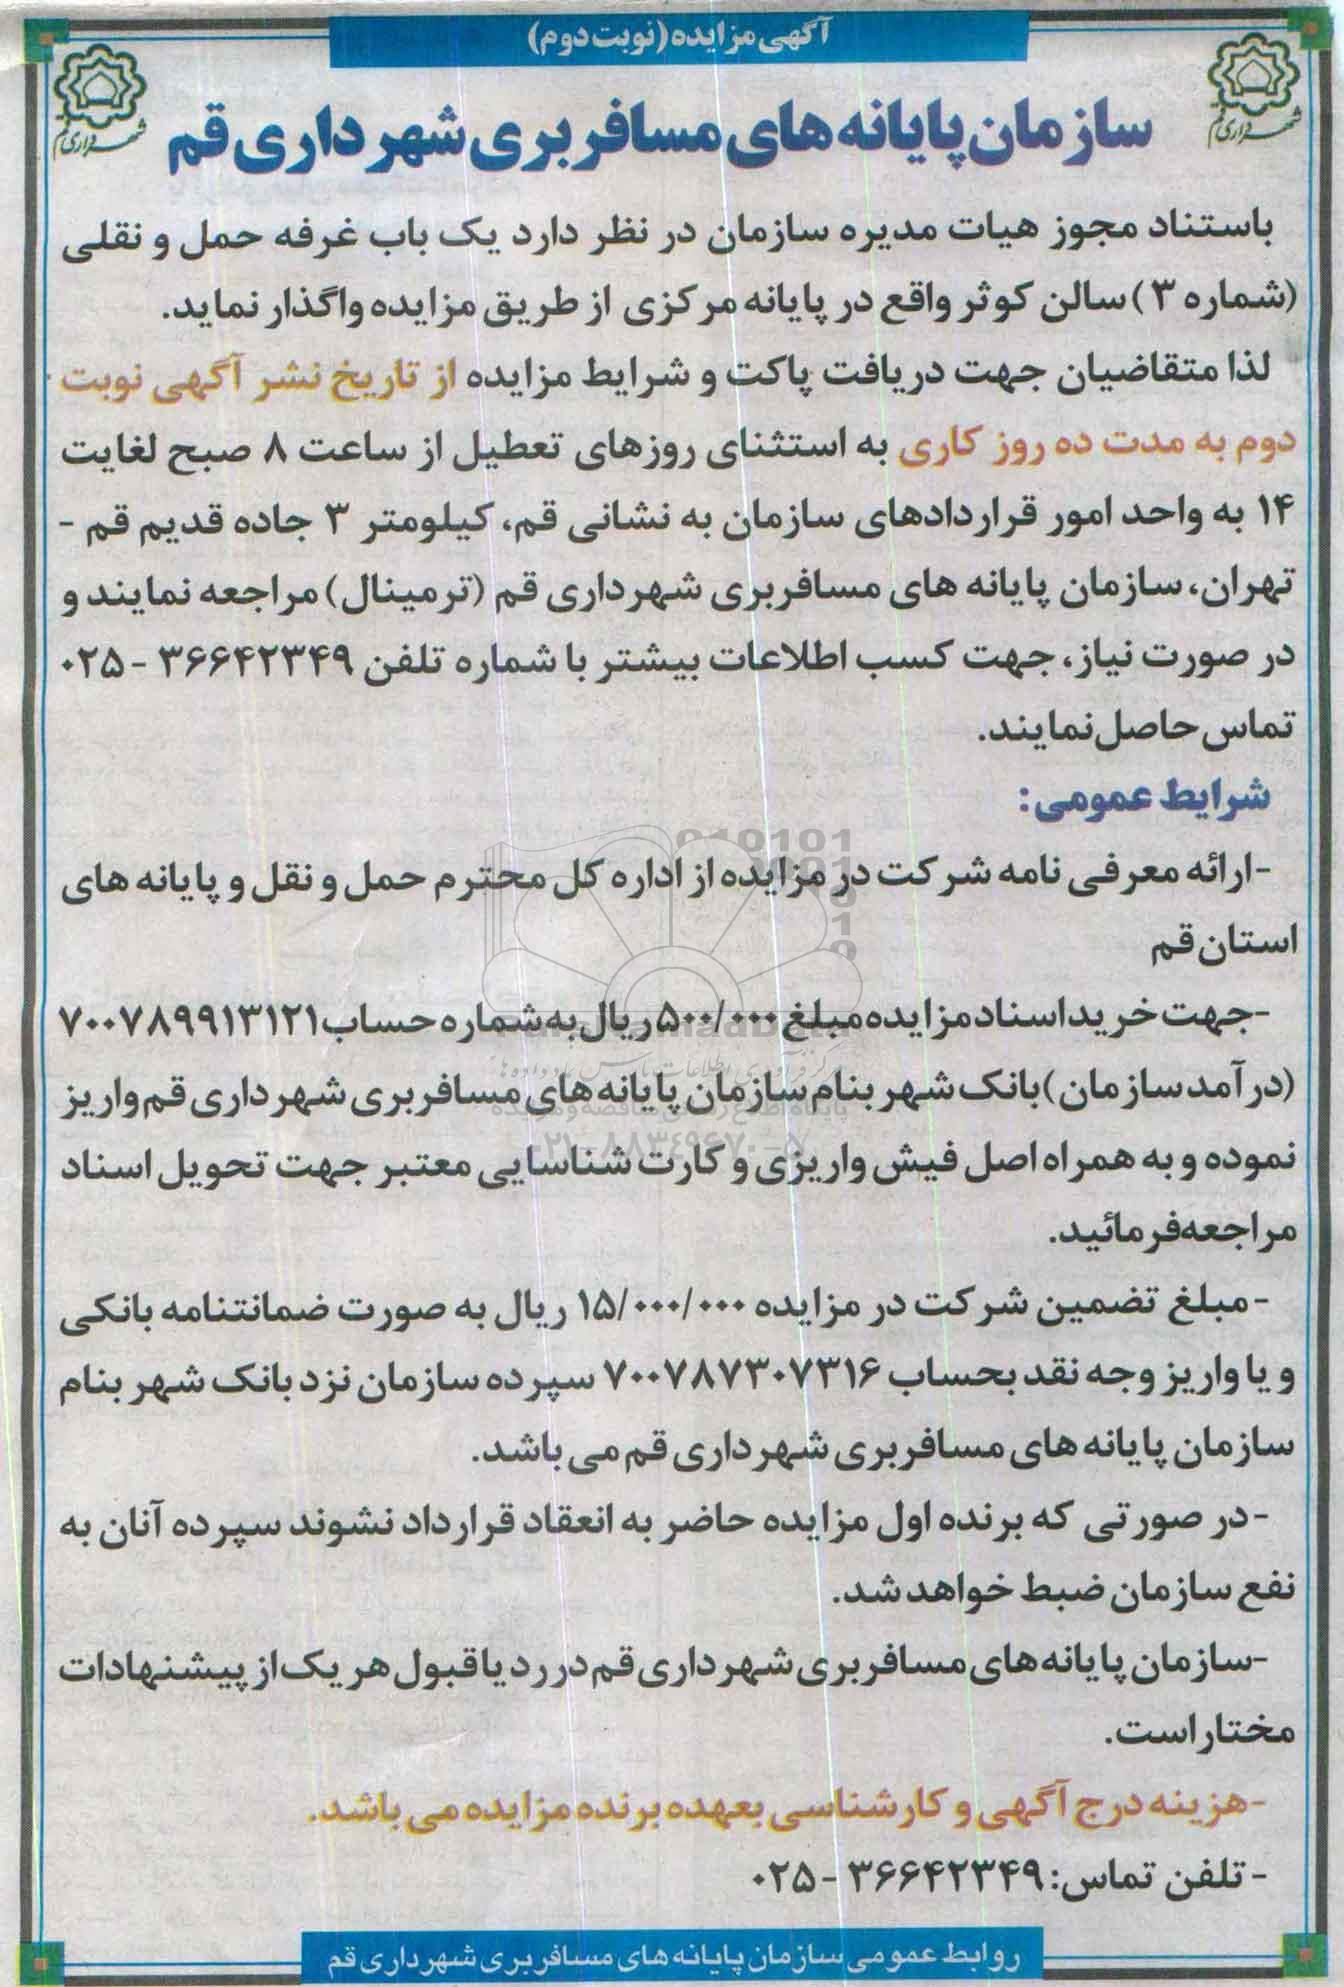 آگهی مزایده (نوبت دوم)
شهرداری قم
شهرداری قم
سازمان پایانه های مسافربری شهرداری قم
باستناد مجوز هیات مدیره سازمان در نظر دارد یک باب غرفه حمل و نقلی
(شماره ۳) سالن کوثر واقع در پایانه مرکزی از طریق مزایده واگذار نماید.
لذا متقاضیان جهت دریافت پاکت و شرایط مزایده از تاریخ نشر آگهی نوبت
دوم به مدت ده روز کاری به استثنای روزهای تعطیل از ساعت ۸ صبح لغایت
۱۴ به واحد امور قراردادهای سازمان به نشانی قم، کیلومتر ۳ جاده قدیم قم -
تهران، سازمان پایانه های مسافربری شهرداری قم (ترمینال) مراجعه نمایند و
در صورت نیاز، جهت کسب اطلاعات بیشتر با شماره تلفن ۳۶۶۴۲۳۴۹ - ۰۲۵
تماس حاصل نمایند.
شرایط عمومی:
-ارائه معرفی نامه شرکت در مزایده از اداره کل محترم حمل و نقل و پایانه های
استان قم
-جهت خرید اسناد مزایده مبلغ ۵۰۰/۰۰۰ ریال به شماره حساب ۷۰۰۷۸۹۹۱۳۱۲۱
(درآمد سازمان) بانک شهر بنام سازمان پایانه های مسافربری شهرداری قم واریز
نموده و به همراه اصل فیش واریزی و کارت شناسایی معتبر جهت تحویل اسناد
مراجعه فرمائید.
-مبلغ تضمین شرکت در مزایده ۱۵/۰۰۰/۰۰۰ ریال به صورت ضمانتنامه بانکی
و یا واریز وجه نقد بحساب ۷۰۰۷۸۷۳۰۷۳۱۶ سپرده سازمان نزد بانک شهر بنام
سازمان پایانه های مسافربری شهرداری قم می باشد.
-در صورتی که برنده اول مزایده حاضر به انعقاد قرارداد نشوند سپرده آنان به
نفع سازمان ضبط خواهد شد.
-سازمان پایانه های مسافربری شهرداری قم در رد یا قبول هر یک از پیشنهادات
مختار است.
-هزینه درج آگهی و کارشناسی بعهده برنده مزایده می باشد.
- تلفن تماس: ۳۶۶۴۲۳۴۹ - ۰۲۵
روابط عمومی سازمان پایانه های مسافربری شهرداری قم
۰۲۱-۸۸۳۴۹۶۷۰-۵